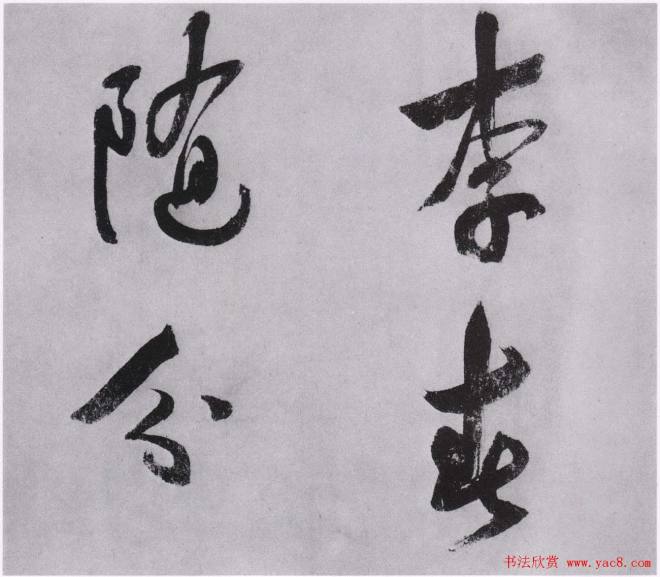 李春
随分
书法欣赏 www.yac8.com